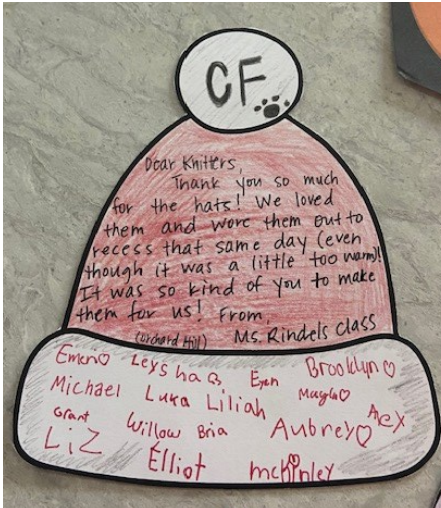 CF
Dear Knitters,
Thank you so much
for the hats! We loved
them and wore them out to
recess that same day (even
though it was a little too warm)!
It was so kind of you to make
them for us! From,
(Orchard Hill) Ms. Rindels class
Emeri Leysha B. Brooklyn
Michael Luka Liliah Mayla
Grant Willow Bria Aubrey Alex
Liz Elliot mckinley